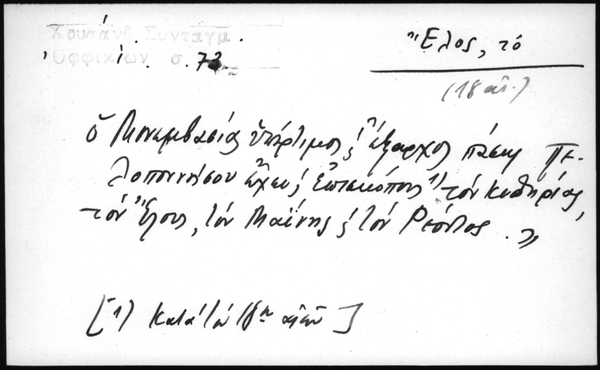 Χρυσάνθ. Συνταγμ.
Ὀφφικίων σ. 73
Ἕλος, τό
(18 αἰ.)
ὁ Μονεμβασίας ὑπέρτιμος ἔξαρχος πάσης Πε-
λοποννήσου ἔχει Ἐπισκόπους 1) τόν Κυθηρίας,
τόν Ἕλους, τόν Μαΐνης τόν Ρέοντος."
[1) Κατά τόν 18ον αἰῶνα]